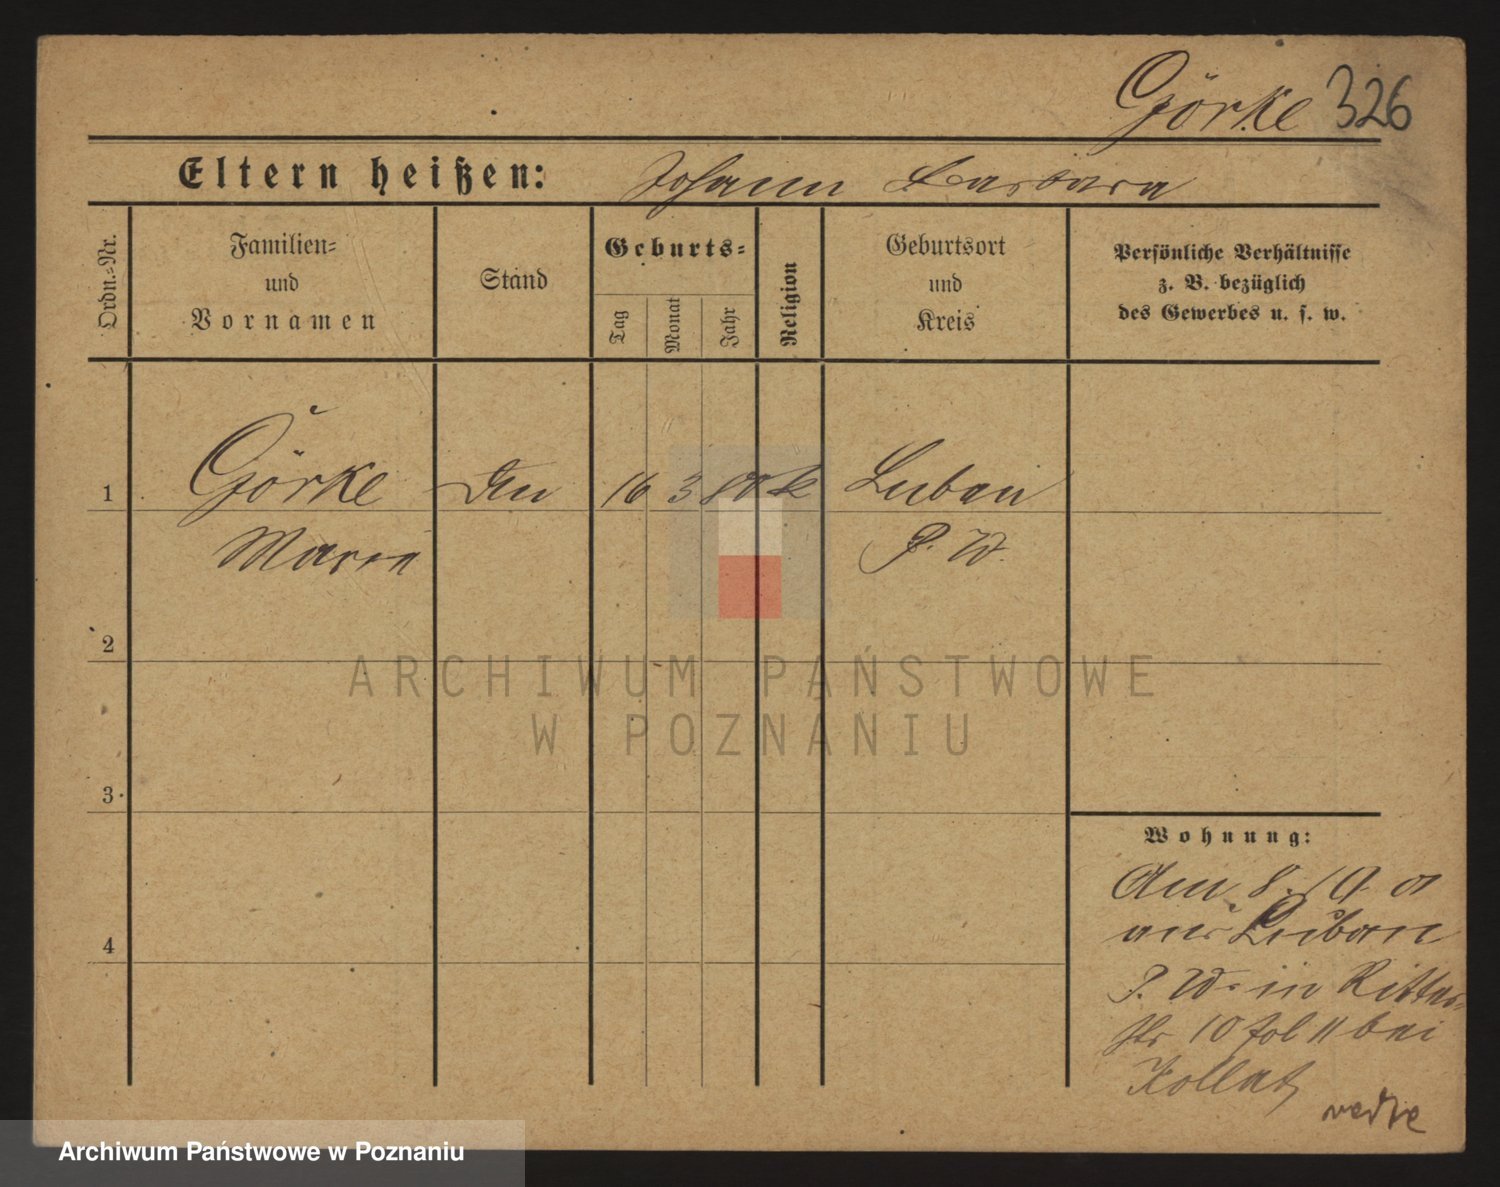 Görke 326
Eltern heißen: Johann Barbara
Ordn.-Nr.
Familien-
und
Vornamen
Stand
Geburts-
Tag
Monat
Jahr
Religion
Geburtsort
und
Kreis
Persönliche Verhältnisse
z. B. bezüglich
des Gewerbes u. s. w.
1 Görke 16 3 80 k Luban
Maria P. W.
2
3
4
ARCHIWUM PAŃSTWOWE
W POZNANIU
Wohnung:
Am 8. 10. 01
aus Luban
P. W. in Ritter-
str 10 bei
Kollat
Archiwum Państwowe w Poznaniu